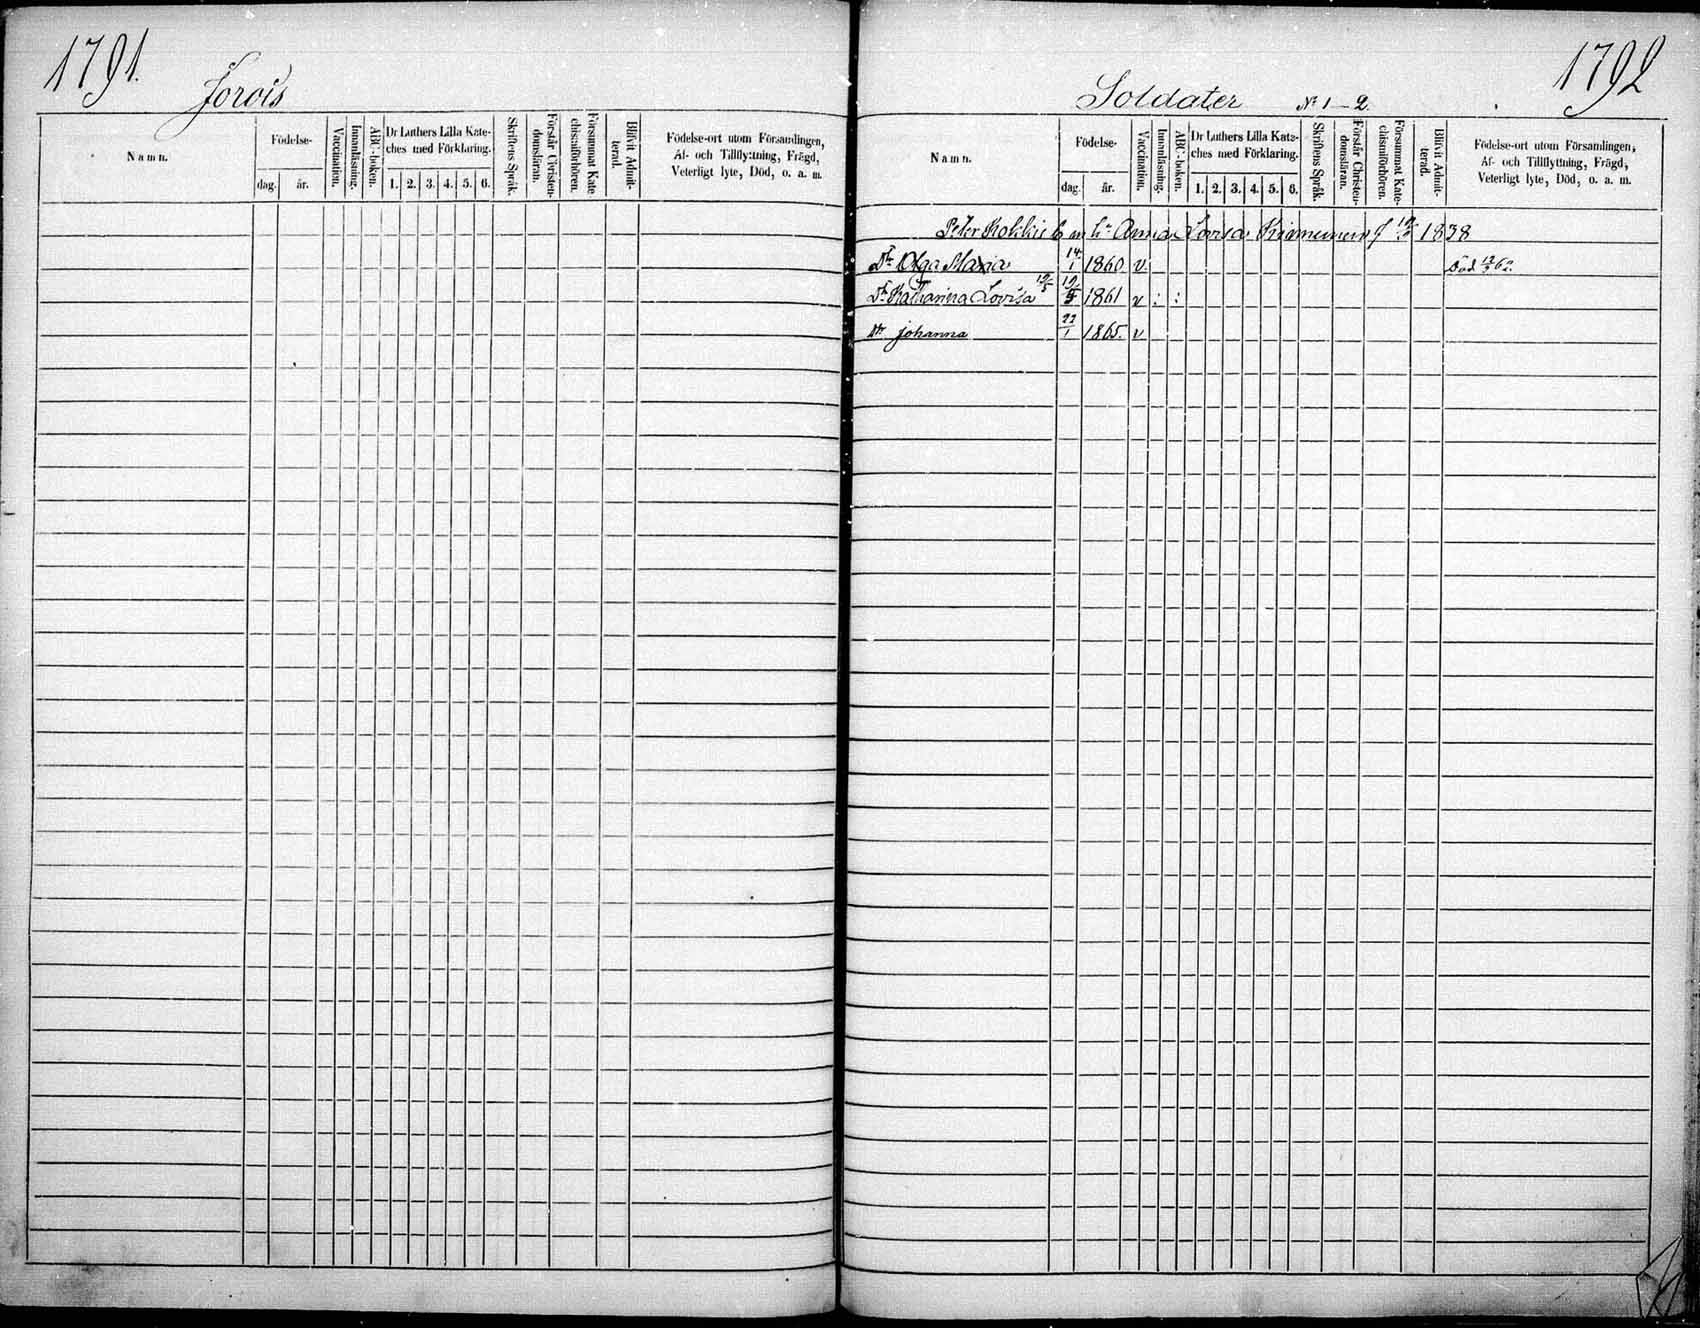 1791.
Jorois
Namn.
Födelse-
dag.
år.
Vaccination.
Innanläsning.
ABC-boken.
Dr Luthers Lilla Kate-
ches med Förklaring.
1. 2. 3. 4. 5. 6.
Skriftens Språk.
Förstår Christen-
domsläran.
Försummat Kate
chismiförhören.
Blifvit Admit-
terad.
Födelse-ort utom Församlingen,
Af- och Tillflyttning, Frägd,
Veterligt lyte, Död, o. a. m.
1792
Soldater No 1-2.
Namn.
Födelse-
dag.
år.
Vaccination.
Innanläsning.
ABC-boken.
Dr Luthers Lilla Kate-
ches med Förklaring.
1. 2. 3. 4. 5. 6.
Skriftens Språk.
Förstår Christen-
domsläran.
Försummat Kate-
chismiförhören.
Blifvit Admit-
terad.
Födelse-ort utom Församlingen,
Af- och Tillflyttning, Frägd,
Veterligt lyte, Död, o. a. m.
Peter Kokkie Anna Lovisa f 1838
Dr Olga Maria 14/1 1860 v Död 62.
Dr Katharina Lovisa 19/5 1861 v : :
Dr Johanna 22/1 1865. v